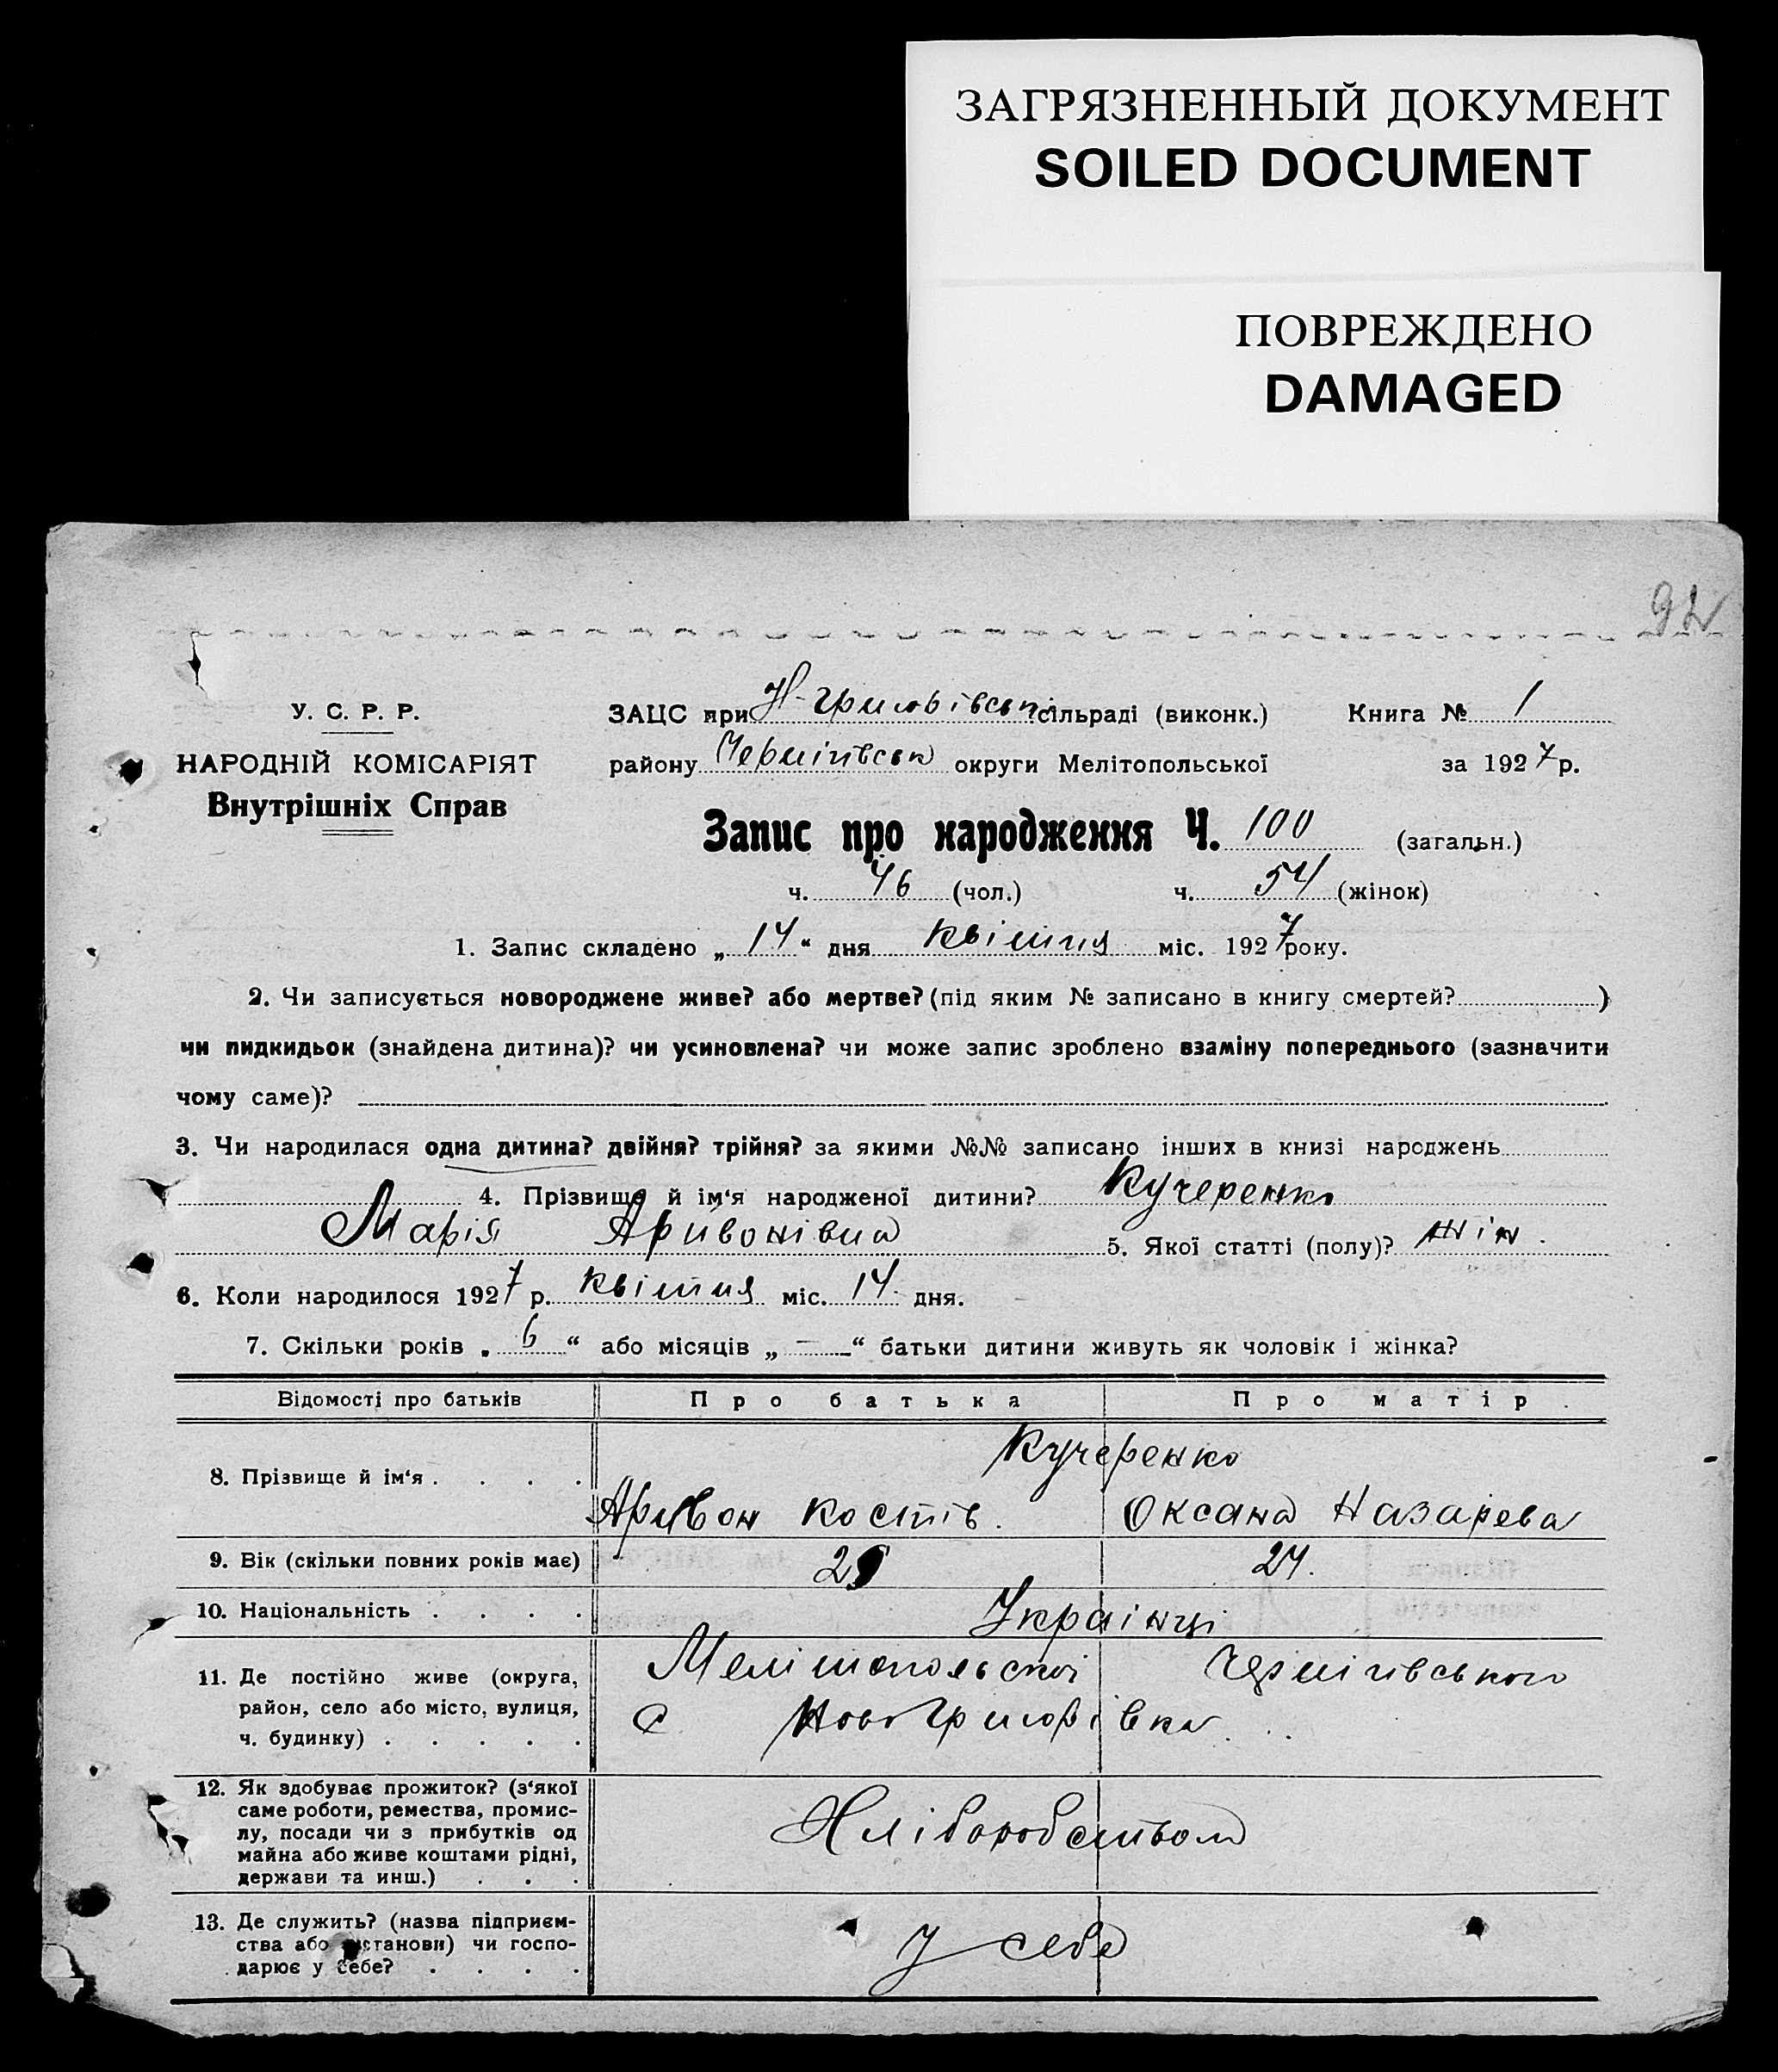 ЗАГРЯЗНЕННЫЙ ДОКУМЕНТ
SOILED DOCUMENT
ПОВРЕЖДЕНО
DAMAGED
92
У. С. Р. Р.
НАРОДНІЙ КОМІСАРІЯТ
Внутрішніх Справ
ЗАЦС при сільраді (виконк.) Книга № 1
району Чернігівськ округи Мелітопольської за 1927 р.
Запис про народження Ч. 100 (загальн.)
ч. 46 (чол.) ч. 54 (жінок)
1. Запис складено „ 14 “ дня квітня міс. 1927 року.
2. Чи записується новороджене живе? або мертве? (під яким № записано в книгу смертей? )
чи пидкидьок (знайдена дитина)? чи усиновлена? чи може запис зроблено взаміну попереднього (зазначити
чому саме)?
3. Чи народилася одна дитина? двійня? трійня? за якими №№ записано інших в книзі народжень
4. Прізвище й ім‘я народженої дитини? Кучеренко
Марія 5. Якої статті (полу)? жін.
6. Коли народилося 1927 р. квітня міс. 14 дня.
7. Скільки років „ 6 “ або місяців „ — “ батьки дитини живуть як чоловік і жінка?
Відомості про батьків Про батька Про матір
8. Прізвище й ім‘я . . . . Кучеренко
Костів. Оксана Назарева
9. Вік (скільки повних років має) 24.
10. Національність . . . . Українці
11. Де постійно живе (округа, район, село або місто, вулиця, ч. будинку) . . . . . Мелітопольської Чернігівського
с. Новогригорівка
12. Як здобуває прожиток? (з‘якої
саме роботи, ремества, промис-
лу, посади чи з прибутків од
майна або живе коштами рідні,
держави та инш.) . . . Хліборобством
13. Де служить? (назва підприєм-
ства або установи) чи госпо-
дарює у себе? . . . . У себе